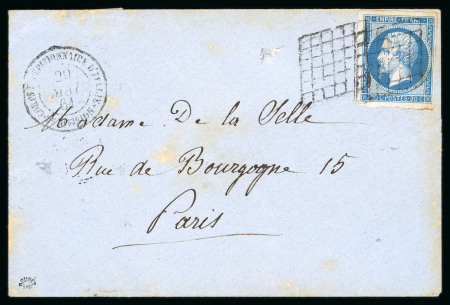 EMPIRE FRANC
20 C. POSTES 20 C.
20
MAI
Madame De la Selle
Rue de Bourgogne 15
Paris